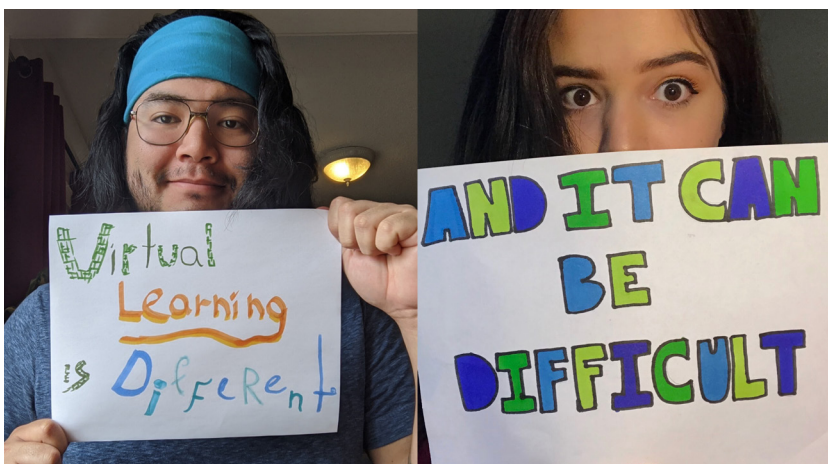 Virtual
Learning
is Different
AND IT CAN
BE
DIFFICULT